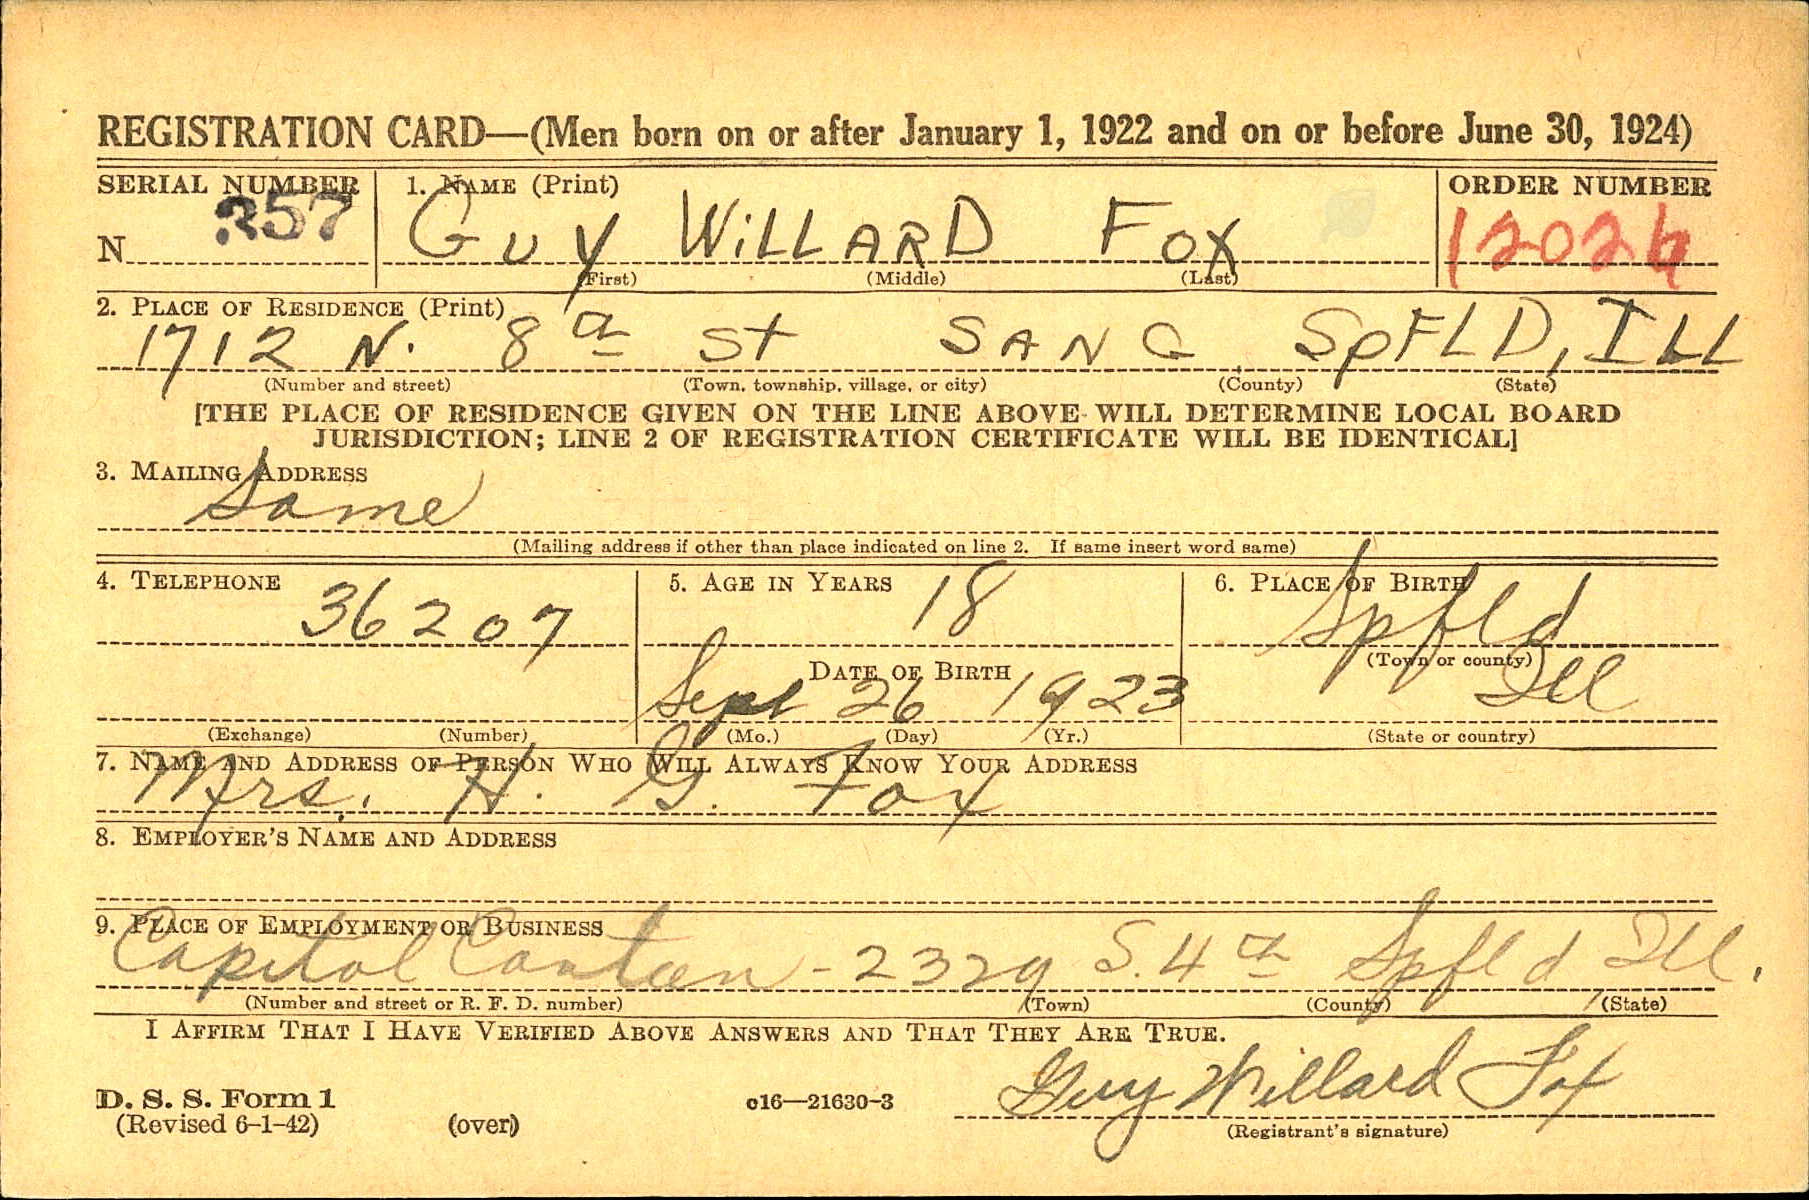 REGISTRATION CARD—(Men born on or after January 1, 1922 and on or before June 30, 1924)
SERIAL NUMBER 1. NAME (Print) ORDER NUMBER
N 357 GUY WiLLARD FOX 12026
(First) (Middle) (Last)
2. PLACE OF RESIDENCE (Print)
1712 N. 8th St SANG SpFLD, ILL
(Number and street) (Town, township, village, or city) (County) (State)
[THE PLACE OF RESIDENCE GIVEN ON THE LINE ABOVE WILL DETERMINE LOCAL BOARD
JURISDICTION; LINE 2 OF REGISTRATION CERTIFICATE WILL BE IDENTICAL]
3. MAILING ADDRESS
Same
(Mailing address if other than place indicated on line 2. If same insert word same)
4. TELEPHONE 5. AGE IN YEARS 6. PLACE OF BIRTH
36207 18 Spfld
(Town or county)
DATE OF BIRTH
Sept 26 1923 Ill
(Exchange) (Number) (Mo.) (Day) (Yr.) (State or country)
7. NAME AND ADDRESS OF PERSON WHO WILL ALWAYS KNOW YOUR ADDRESS
Mrs. H. G. Fox
8. EMPLOYER'S NAME AND ADDRESS
9. PLACE OF EMPLOYMENT OR BUSINESS
Capitol Canteen - 2329 S. 4th Spfld Ill.
(Number and street or R. F. D. number) (Town) (County) (State)
I AFFIRM THAT I HAVE VERIFIED ABOVE ANSWERS AND THAT THEY ARE TRUE.
Guy Willard Fox
D. S. S. Form 1
(Revised 6-1-42) (over) c16—21630-3 (Registrant's signature)